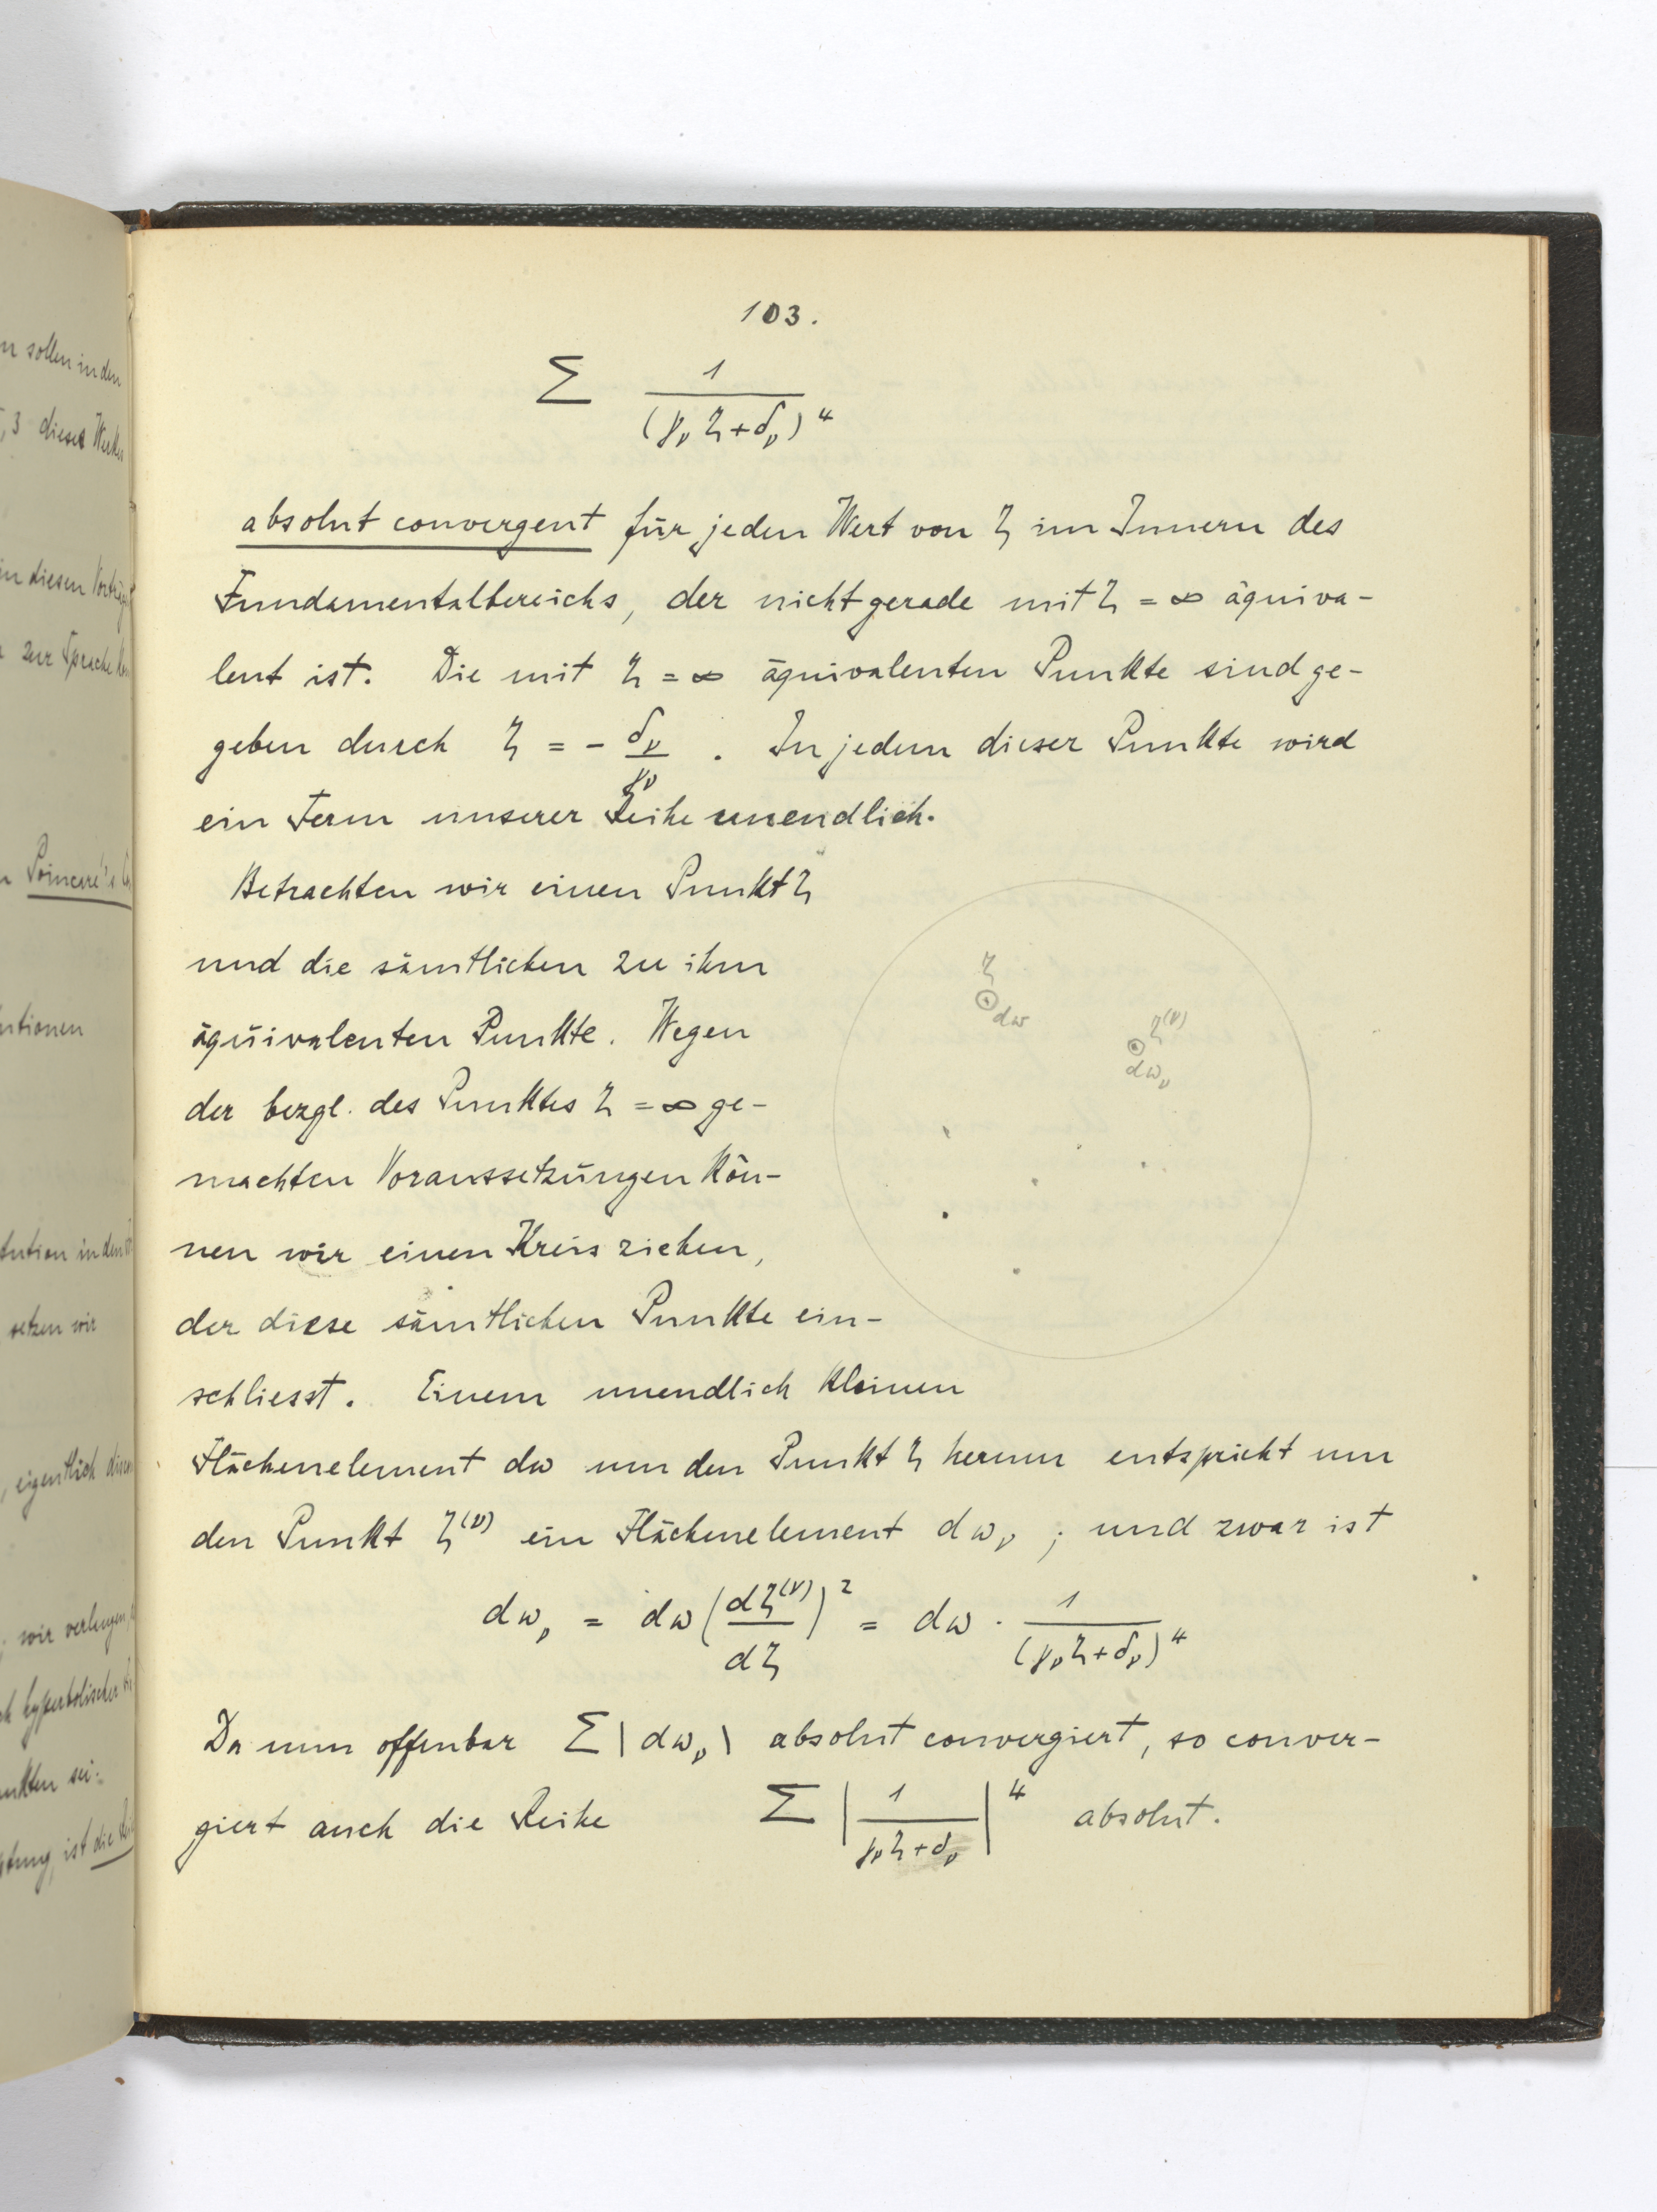 n sollen in den
, 3 dieses Werkes
in diesen
zur Sprache
Poincaré's
setzen wir
eigentlich
wir verlangen,
hyperbolischer
nkten sei:
ist die
103.
Σ 1/(γ_ν ζ + δ_ν)^4
absolut convergent für jeden Wert von ζ im Innern des
Fundamentalbereichs, der nicht gerade mit ζ = ∞ äquiva-
lent ist. Die mit ζ = ∞ äquivalenten Punkte sind ge-
geben durch ζ = - δ_ν/γ_ν . In jedem dieser Punkte wird
ein Term unserer Reihe unendlich.
Betrachten wir einen Punkt ζ
und die sämtlichen zu ihm
äquivalenten Punkte. Wegen
der bezgl. des Punktes ζ = ∞ ge-
machten Voraussetzungen kön-
nen wir einen Kreis ziehen,
der diese sämtlichen Punkte ein-
schliesst. Einem unendlich kleinen
Flächenelement dω um den Punkt ζ herum entspricht um
den Punkt ζ^(ν) ein Flächenelement dω_ν ; und zwar ist
dω_ν = dω (dζ^(ν)/dζ)^2 = dω · 1/(γ_ν ζ + δ_ν)^4
Da nun offenbar Σ |dω_ν| absolut convergiert, so conver-
giert auch die Reihe Σ |1/(γ_ν ζ + δ_ν)|^4 absolut.
ζ
dω
ζ^(ν)
dω_ν